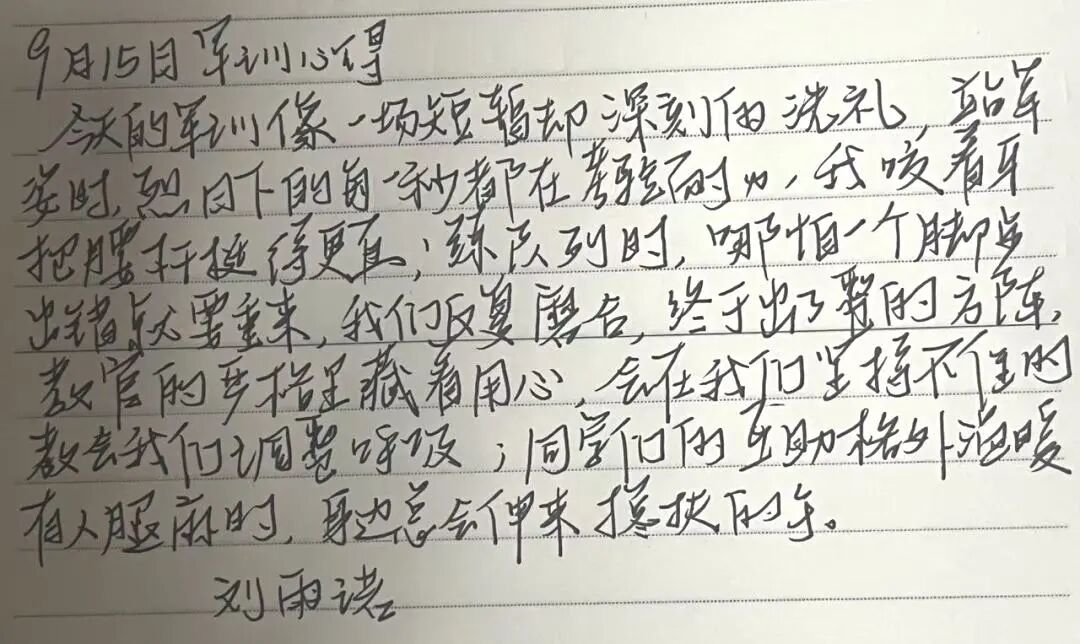 9月15日军训心得
今天的军训像一场短暂却深刻的洗礼，站军
姿时，烈日下的每一秒都在考验耐力，我咬着牙
把腰杆挺得更直；练队列时，哪怕一个脚步
出错就要重来，我们反复磨合，终于出了整的方阵，
教官的严格里藏着用心，会在我们坚持不住的
教会我们调整呼吸；同学们的互助格外温暖
有人腿麻时，身边总会伸来搀扶的手。
刘雨诺